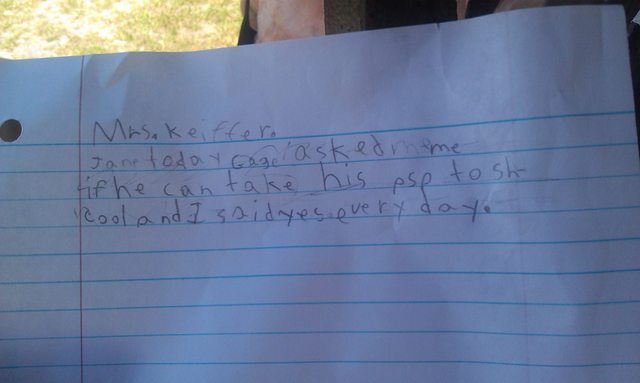 Mrs. Keiffer.
Jane today Gage asked me
if he can take his psp to sh
cool and I said yes every day.